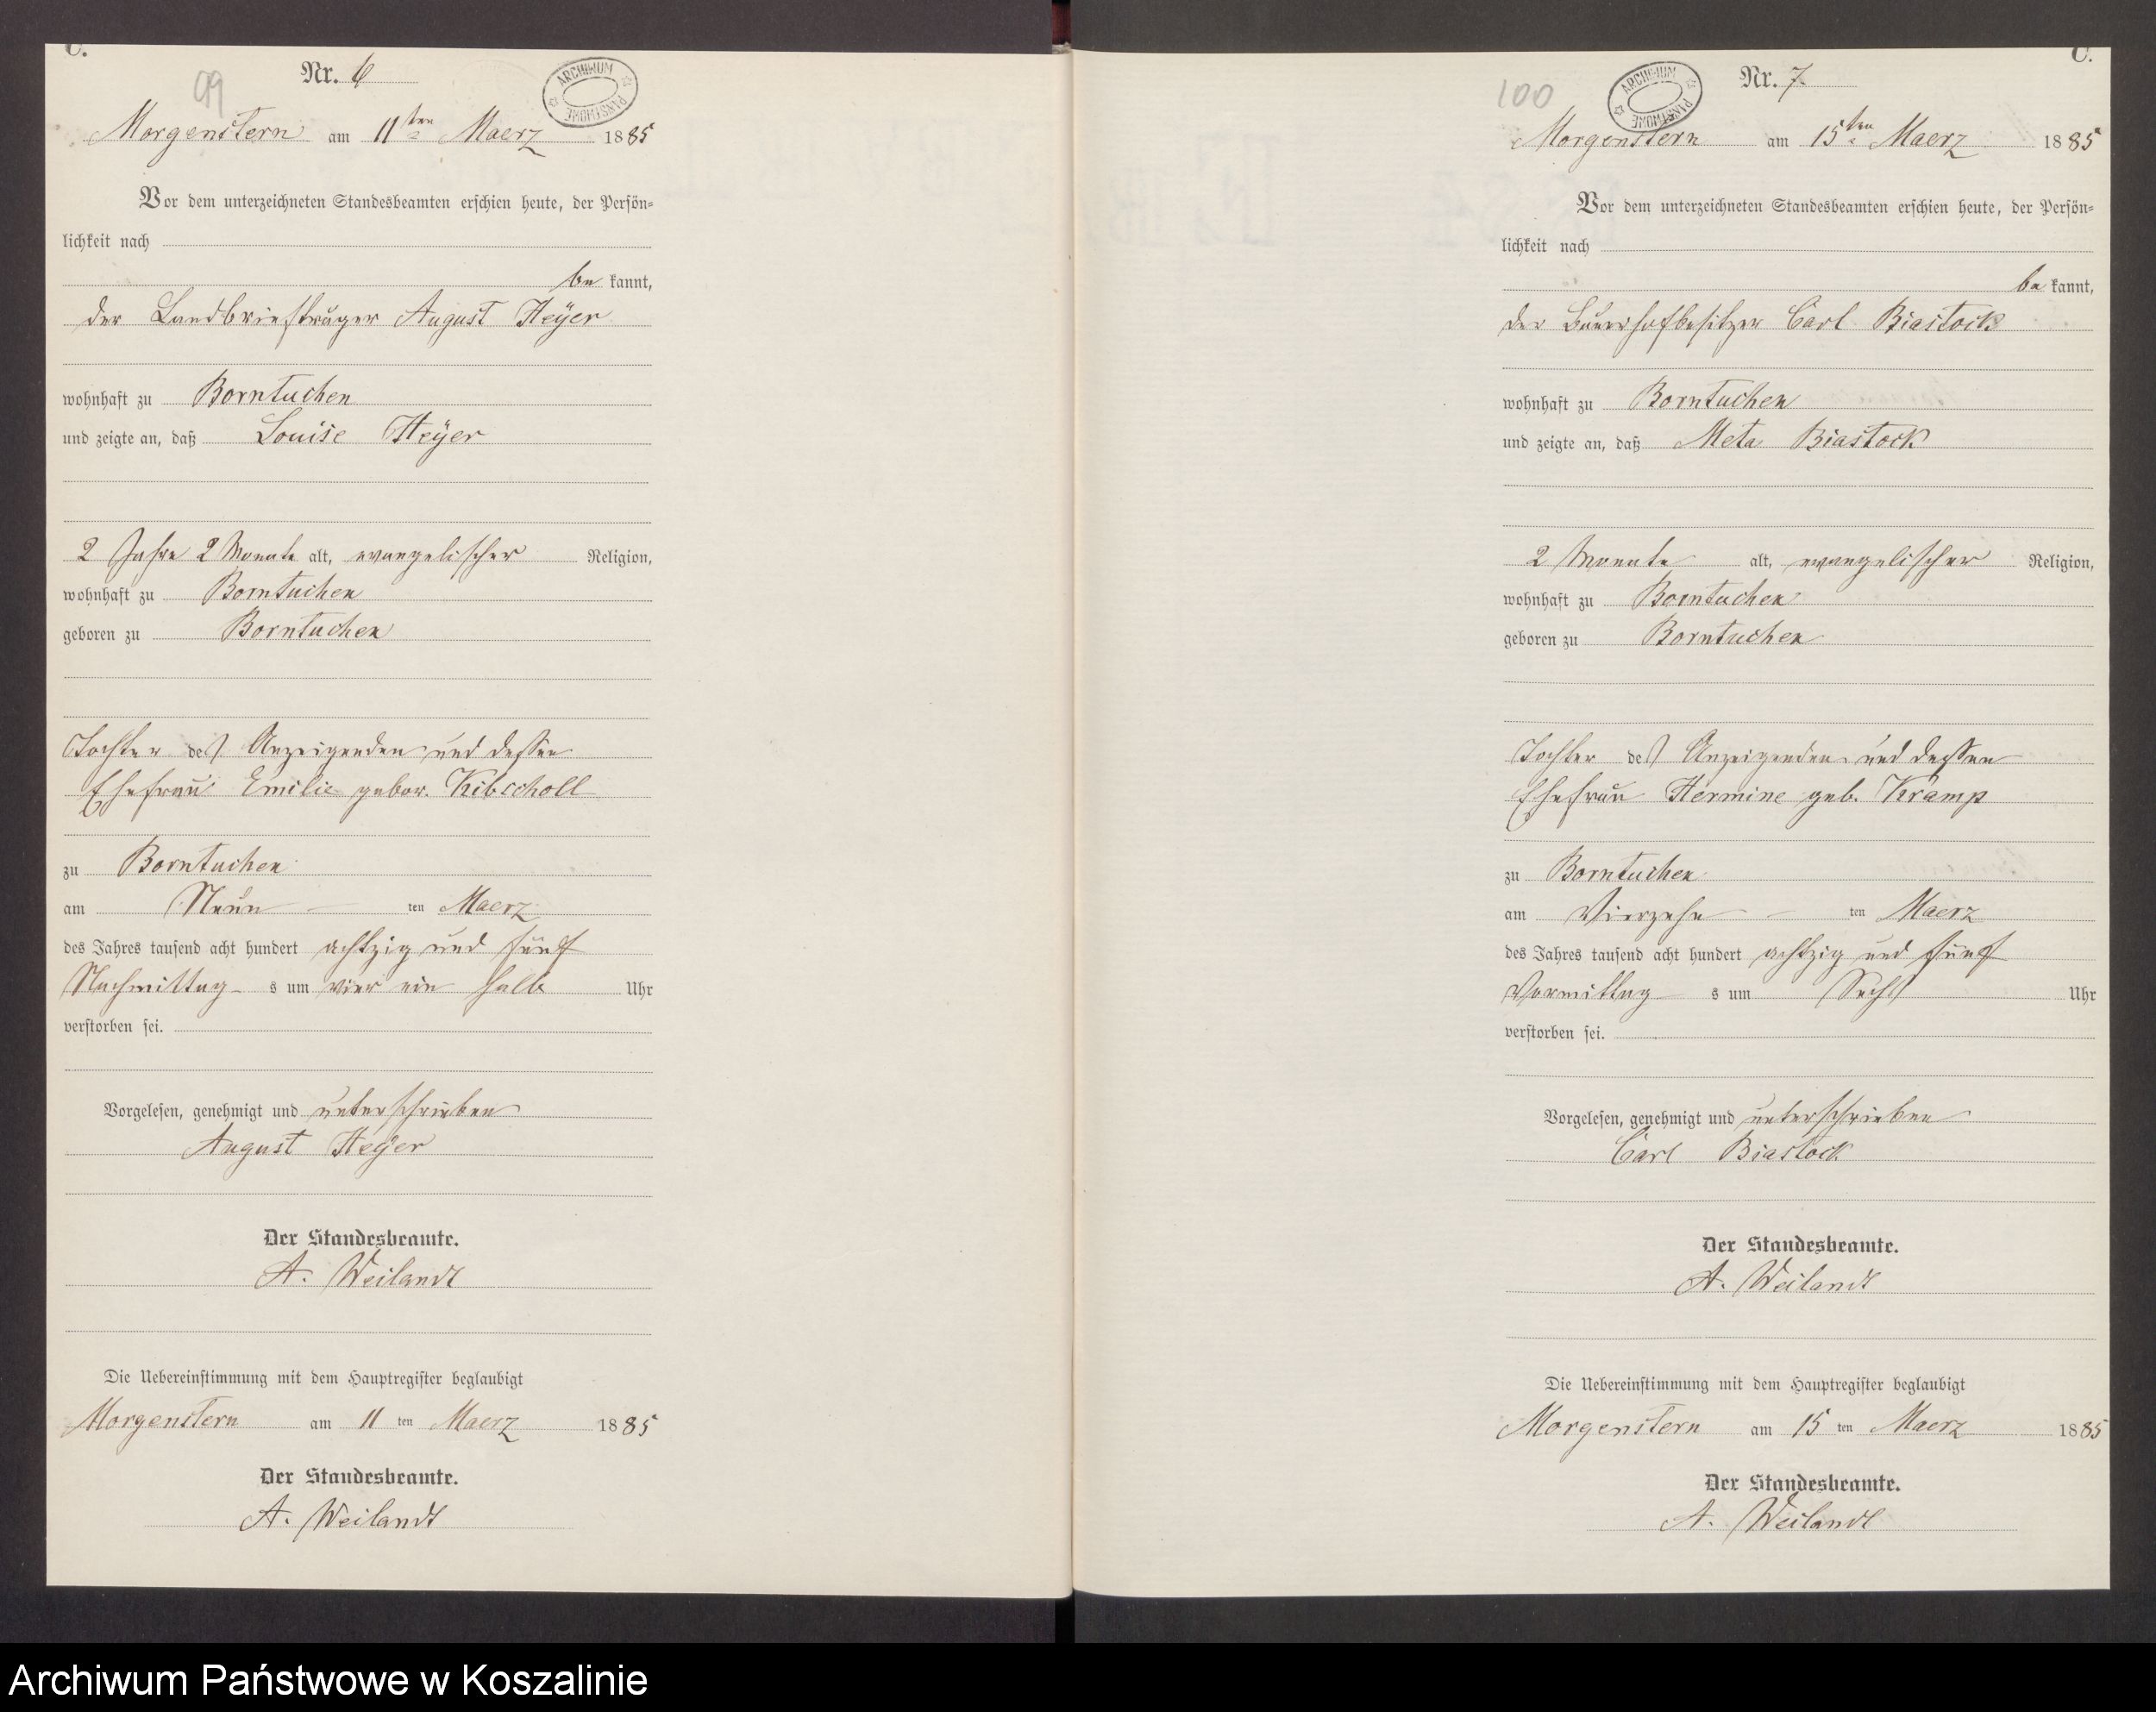 C.
99
Nr. 6
ARCHIWUM PAŃSTWOWE
Morgenstern am 11ten Maerz 1885
Vor dem unterzeichneten Standesbeamten erschien heute, der Persön-
lichkeit nach
be kannt,
der Landbriefträger August Heÿer
wohnhaft zu Borntuchen
und zeigte an, daß Louise Heÿer
2 Jahre 2 Monate alt, evangelischer Religion,
wohnhaft zu Borntuchen
geboren zu Borntuchen
Tochter des Anzeigenden und dessen
Ehefrau Emilie gebor.
zu Borntuchen
am Neun ten Maerz
des Jahres tausend acht hundert achtzig und fünf
Nachmittag s um vier ein halb Uhr
verstorben sei.
Vorgelesen, genehmigt und unterschrieben
August Heÿer
Der Standesbeamte.
A. Weilandt
Die Uebereinstimmung mit dem Hauptregister beglaubigt
Morgenstern am 11 ten Maerz 1885
Der Standesbeamte.
A. Weilandt
C.
100
Nr. 7.
ARCHIWUM PAŃSTWOWE
Morgenstern am 15ten Maerz 1885
Vor dem unterzeichneten Standesbeamten erschien heute, der Persön-
lichkeit nach
be kannt,
der Bauerhofbesitzer Carl Biastock
wohnhaft zu Borntuchen
und zeigte an, daß Meta Biastock
2 Monate alt, evangelischer Religion,
wohnhaft zu Borntuchen
geboren zu Borntuchen
Tochter des Anzeigenden und dessen
Ehefrau Hermine geb. Kramp
zu Borntuchen
am Vierzehn ten Maerz
des Jahres tausend acht hundert achtzig und fünf
Vormittag s um Sechs Uhr
verstorben sei.
Vorgelesen, genehmigt und unterschrieben
Carl Biastock
Der Standesbeamte.
A. Weilandt
Die Uebereinstimmung mit dem Hauptregister beglaubigt
Morgenstern am 15 ten Maerz 1885
Der Standesbeamte.
A. Weilandt
Archiwum Państwowe w Koszalinie